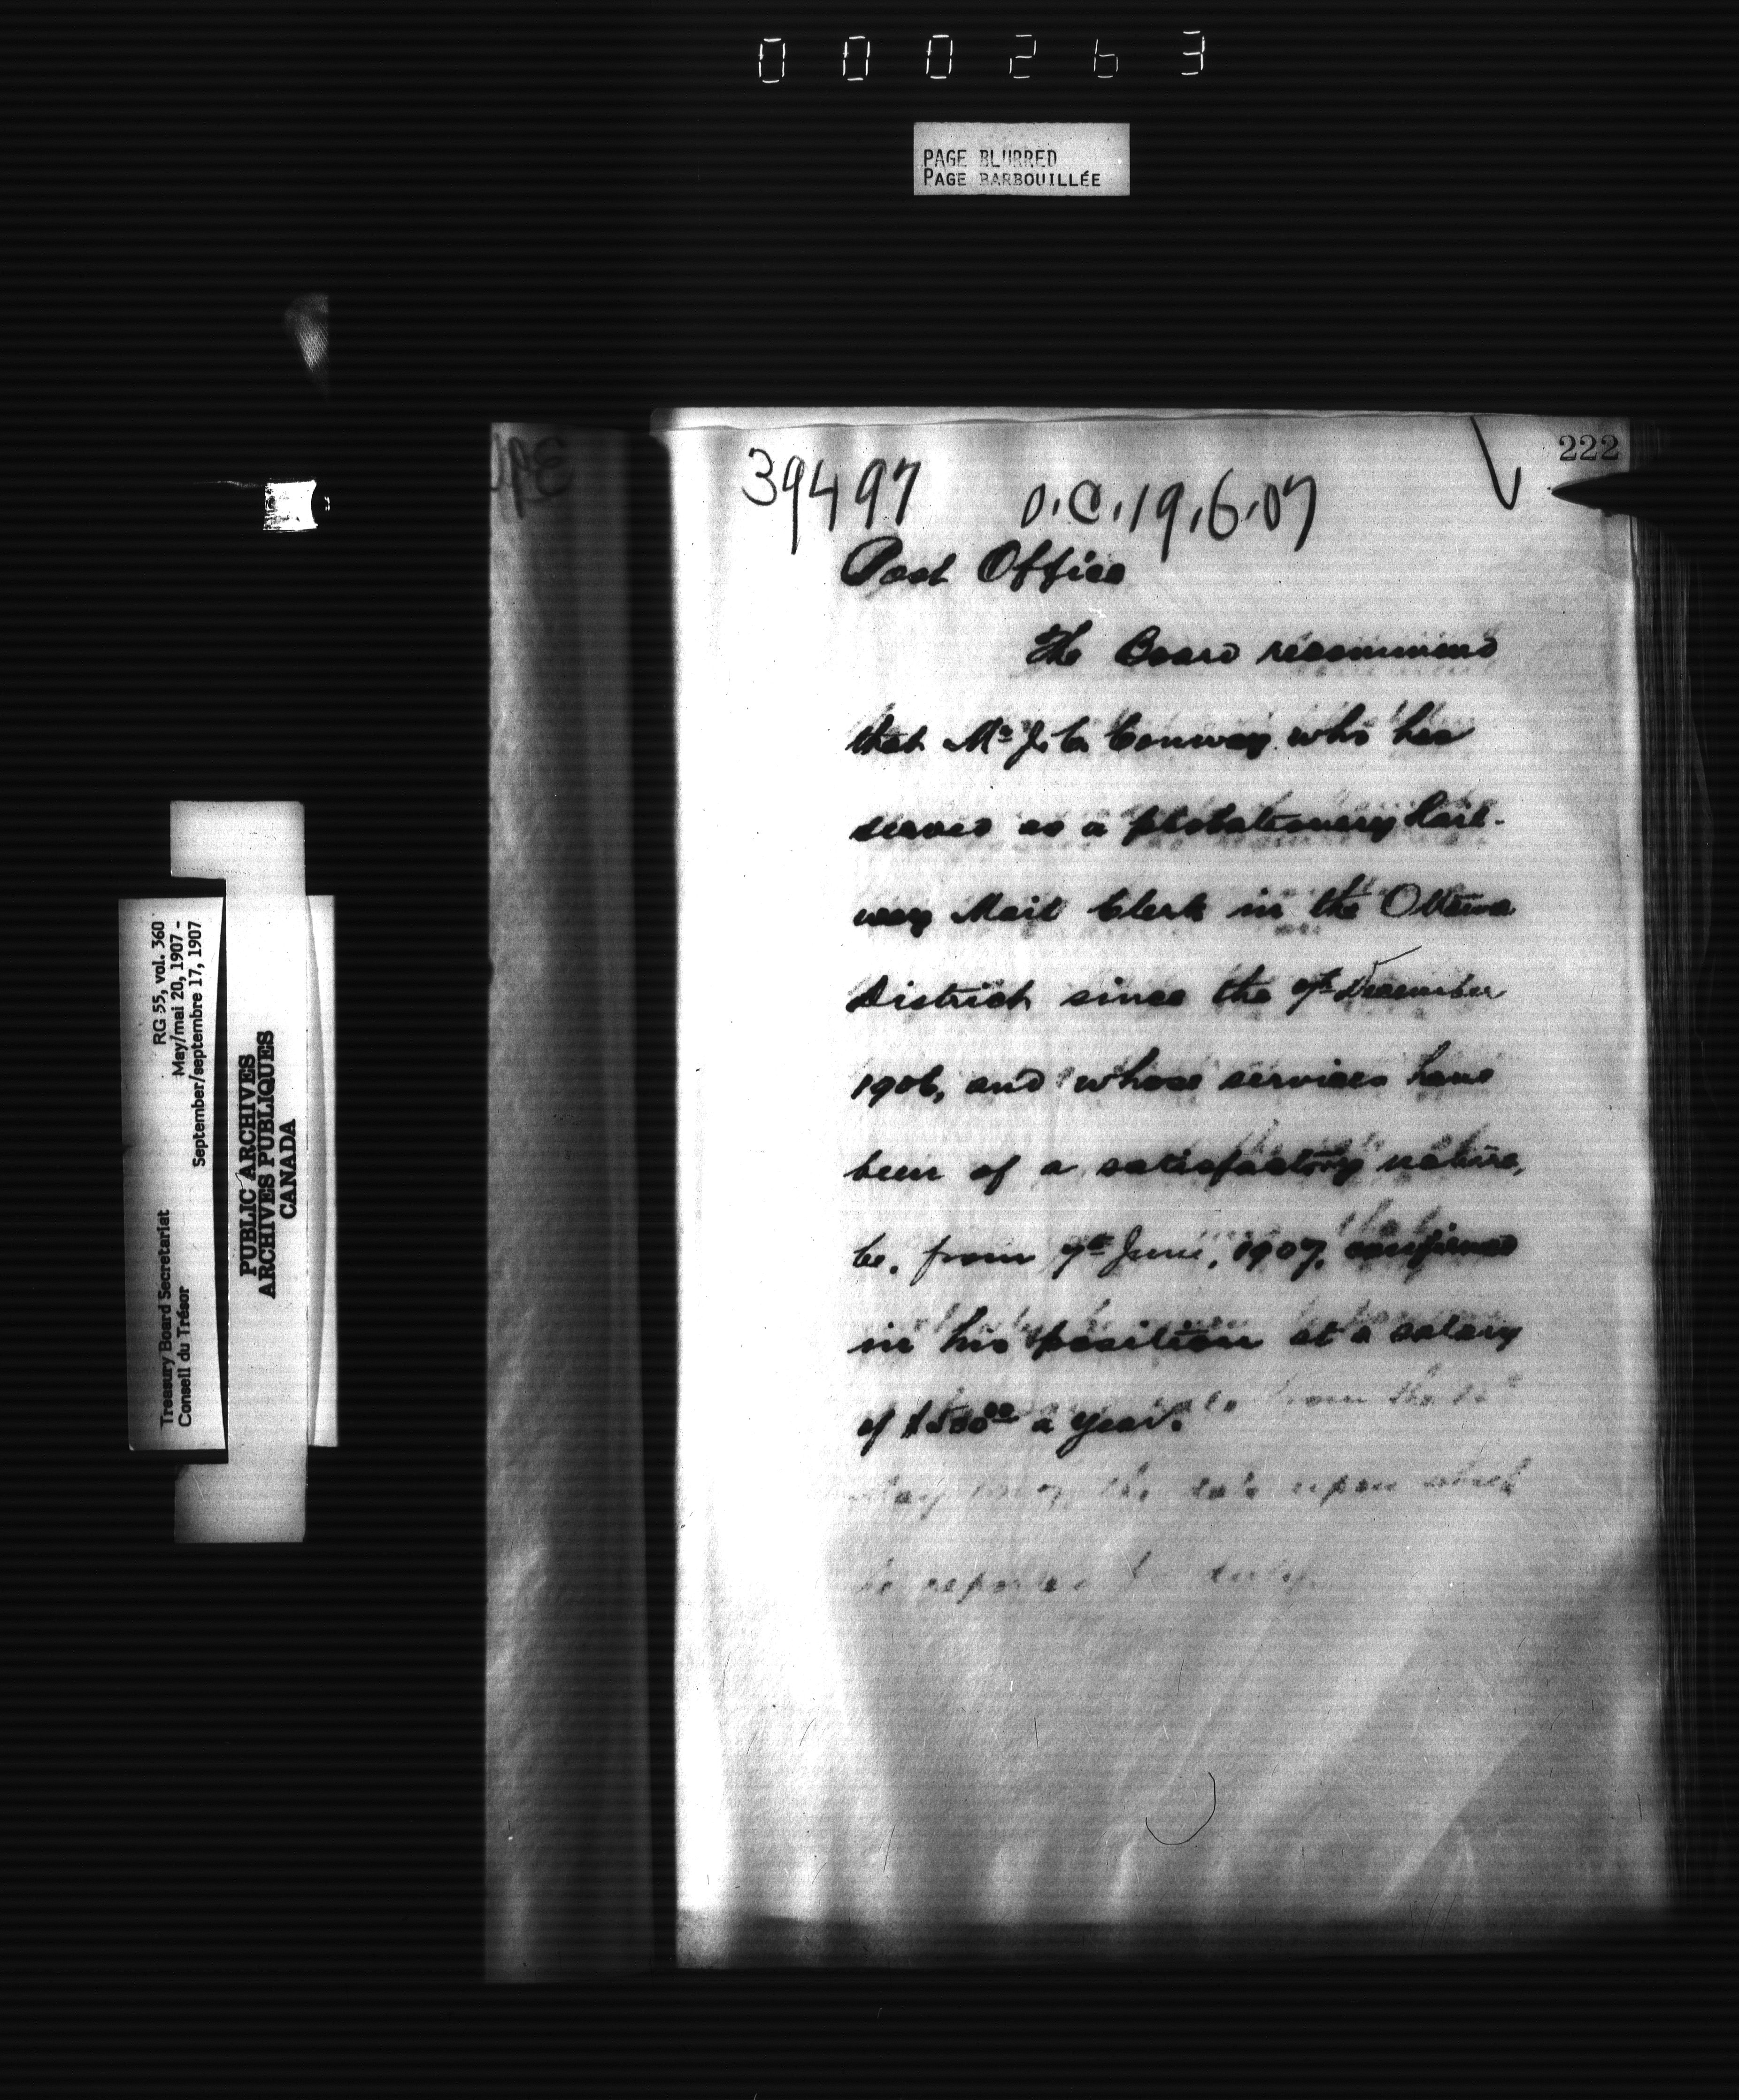 000263
PAGE BLURRED
PAGE BARBOUILLÉE
222
39497 O.C. 19.6.07
Post Office
The Board recommend
that Mr J. C. Conway who has
served as a probationary Rail-
way Mail Clerk in the Ottawa
District since the 7th December
1906, and whose services have
been of a satisfactory nature,
be, from 7th June, 1907, confirmed
in his position at a salary
of $500.00 a year.
from the
May 1907, the date upon which
he reported for duty.
RG 55, vol. 360
May/mai 20, 1907 -
September/septembre 17, 1907
Treasury Board Secretariat
Conseil du Trésor
PUBLIC ARCHIVES
ARCHIVES PUBLIQUES
CANADA